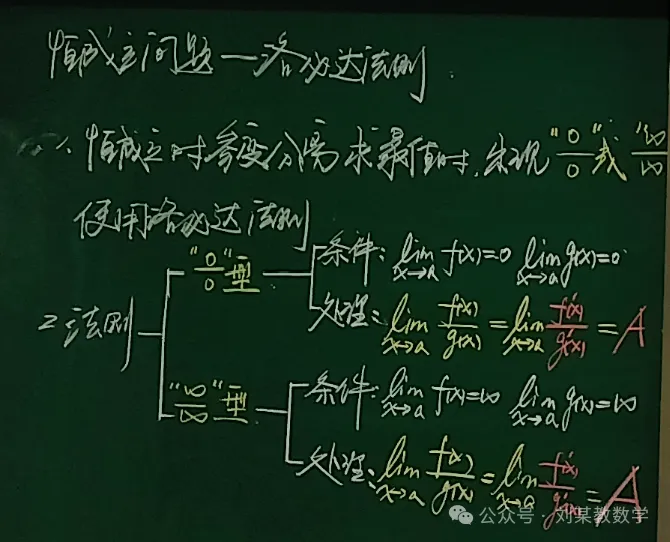 恒成立问题—洛必达法则.
1. 恒成立时参变分离求最值时,出现"0/0"或"∞/∞"
使用洛必达法则
2 法则
"0/0"型
条件: lim x→a f(x)=0 lim x→a g(x)=0
处理: lim x→a f(x)/g(x) = lim x→a f'(x)/g'(x) = A
"∞/∞"型
条件: lim x→a f(x)=∞ lim x→a g(x)=∞
处理: lim x→a f(x)/g(x) = lim x→a f'(x)/g'(x) = A
公众号·刘某教数学